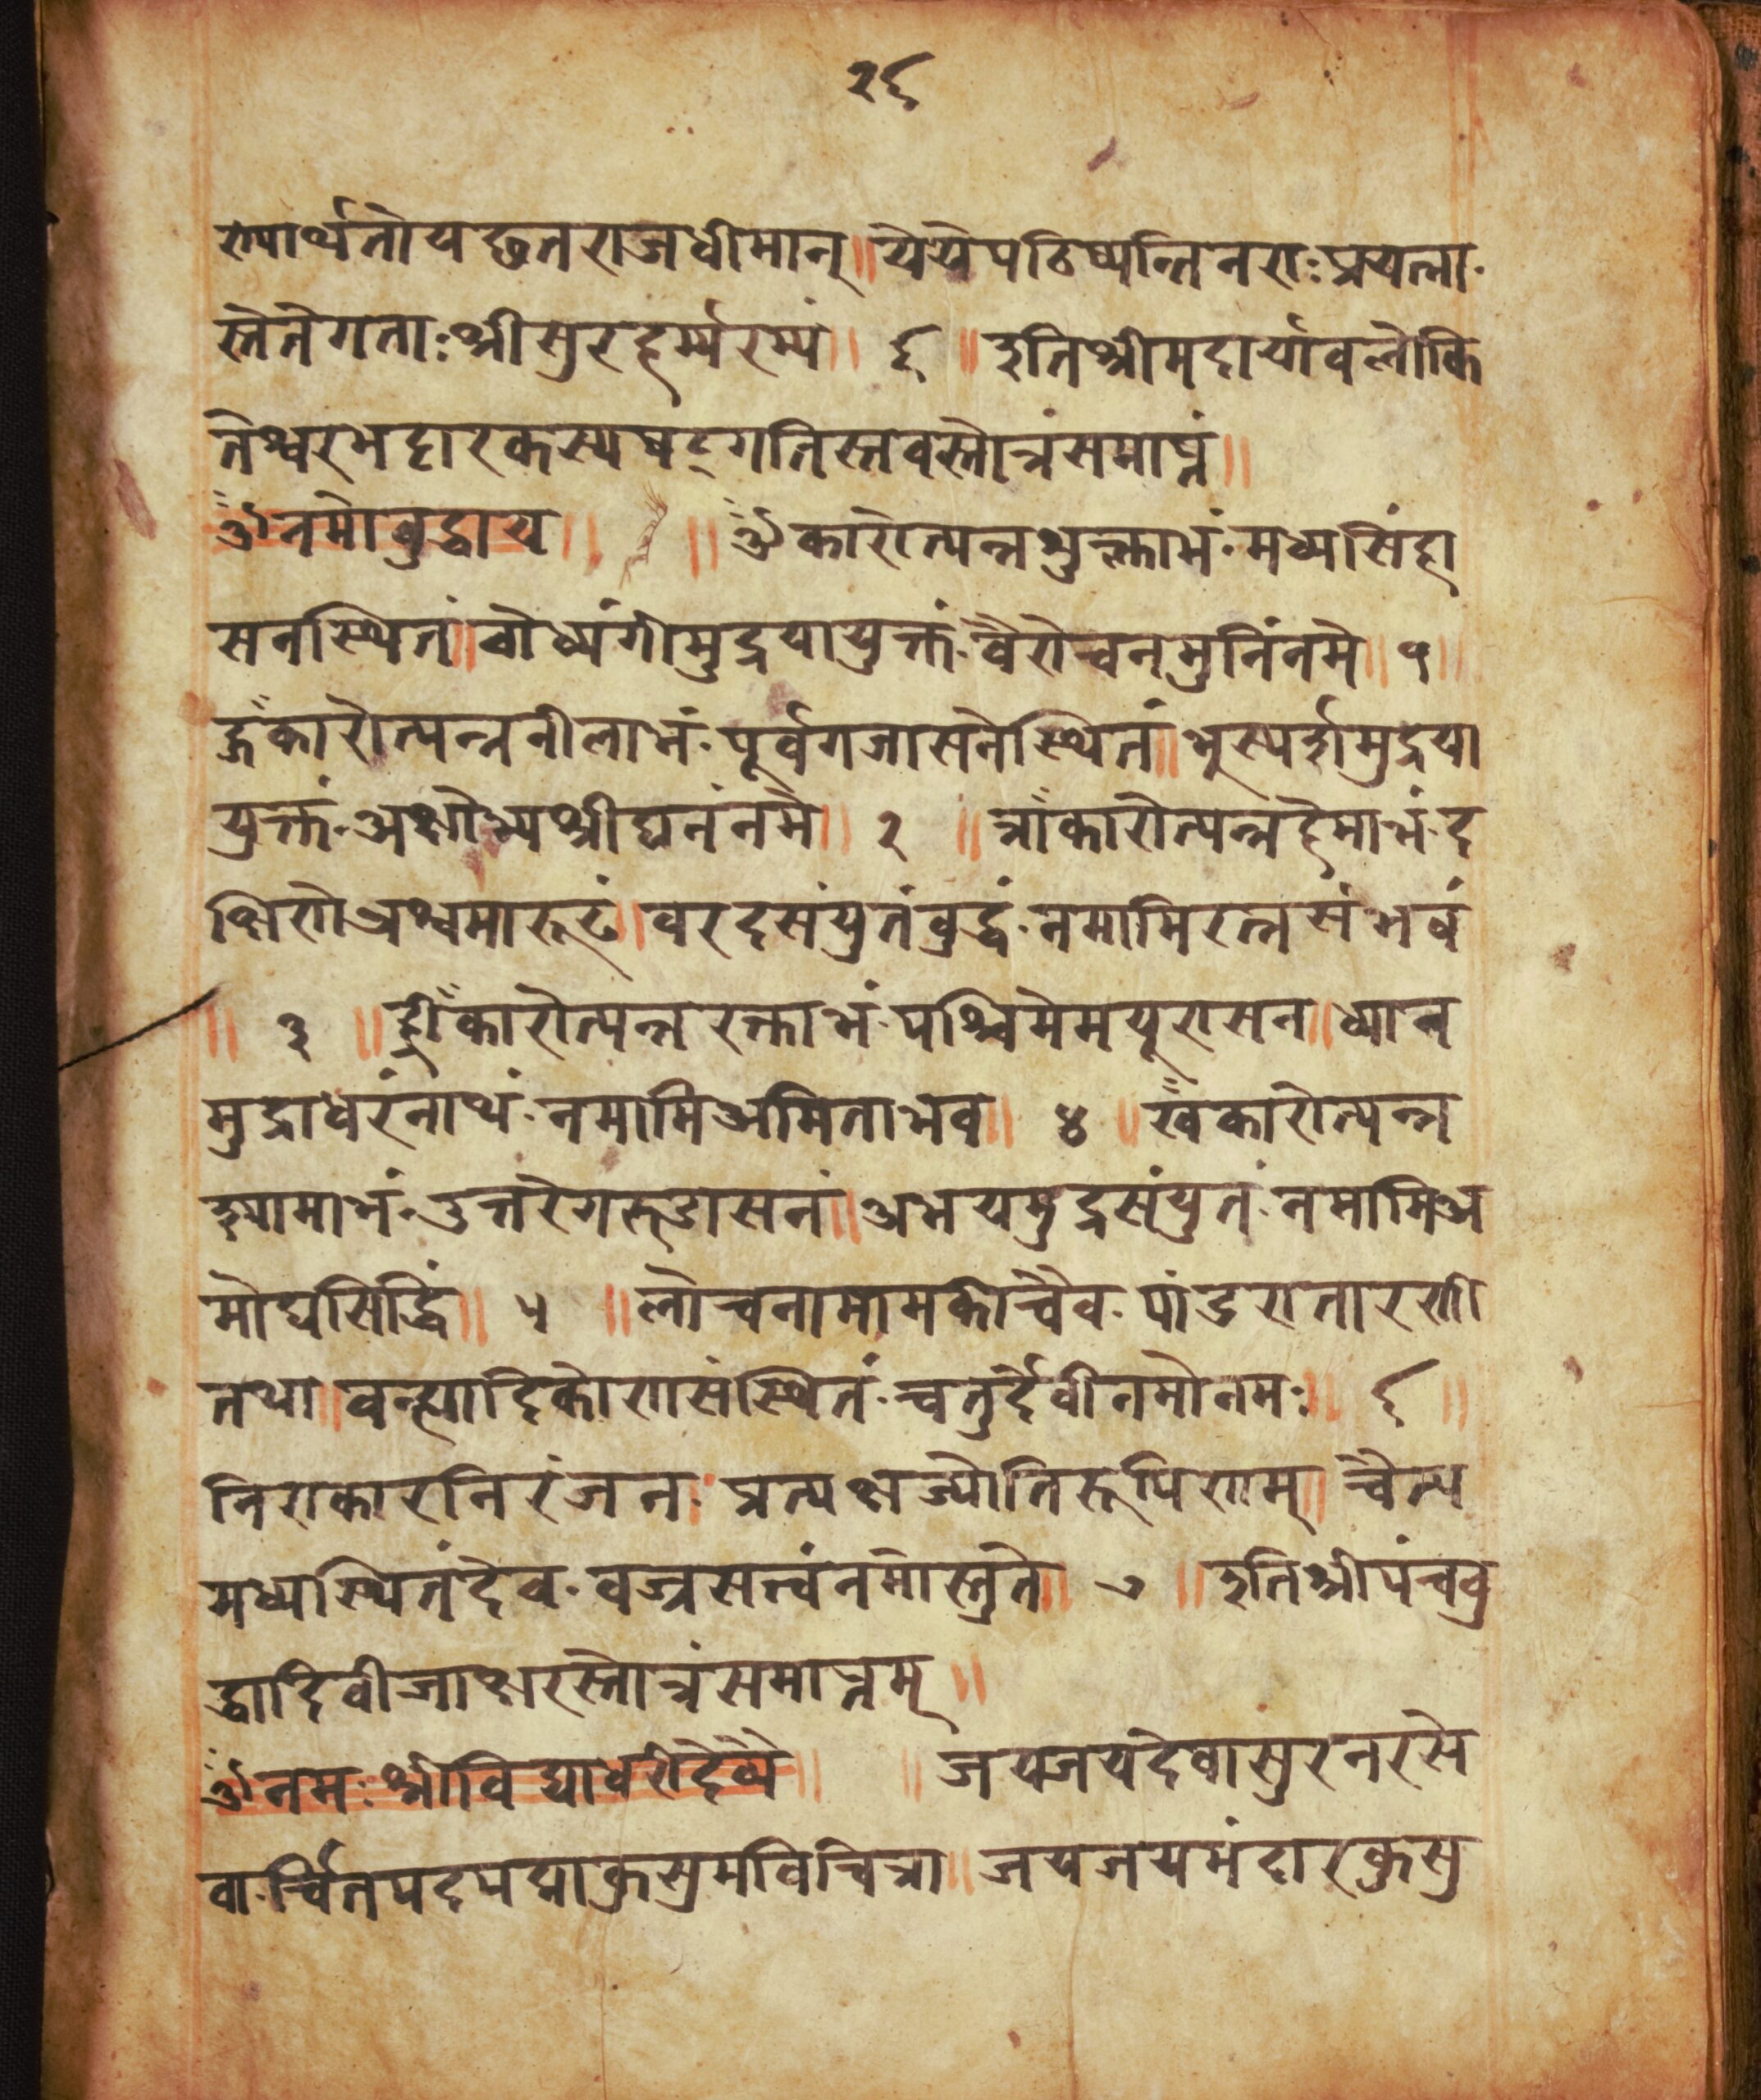 २६
रुपार्थनोयछतराजधीमान्॥येयेपठिष्यन्तिनराःप्रयत्ना·
स्तेतेगताःश्रीसुरहर्म्यरम्यं॥ ६ ॥इतिश्रीमदार्यावलोकि
तेश्वरभट्टारकस्यषद्गतिस्तवस्तोत्रंसमाप्तं॥
ॐनमोबुद्धाय॥ ॥ॐकारोत्पन्नशुक्लाभं·मध्यसिंहा
सनस्थितं॥बोध्यंगीमुद्रयायुक्तं·वैरोचनमुनिंनमे॥ १ ॥
हूँकारोत्पन्ननीलाभं·पूर्वगजासनेस्थितं॥भुस्पर्शमुद्रया
युक्तं·अक्षोभ्यश्रीघनंनमे॥ २ ॥त्राँकारोत्पन्नहेमाभं·द
क्षिणेअश्वमारूढं॥वरदसंयुतंबुद्धं·नमामिरत्नसंभवं
॥ ३ ॥ह्रीँकारोत्पन्नरक्ताभं·पश्चिमेमयूरासन॥ध्यान
मुद्राधरंनाथं·नमामिअमिताभव॥ ४ ॥खँकारोत्पन्न
श्यामाभं·उत्तरेगरूडासनं॥अभयमुद्रसंयुतं·नमामिअ
मोघसिद्धिं॥ ५ ॥लोचनामामकीचैव·पांडरातारणी
तथा॥वन्ह्यादिकोणसंस्थितं·चतुर्देवीनमोनमः॥ ६ ॥
निराकारनिरंजन·प्रत्यक्षज्योतिरूपिणम्॥चैत्य
मध्यस्थितंदेव·वज्रसत्त्वंनमोस्तुते॥ ७ ॥इतिश्रीपंचबु
द्धादिवीजाक्षरस्तोत्रंसमाप्तम्॥
ॐनमःश्रीविद्याधरीदेव्यै॥ ॥जयजयदेवासुरनरसे
वा·र्चितपदपद्माकुसुमविचित्रा॥जयजयमंदारकुसु